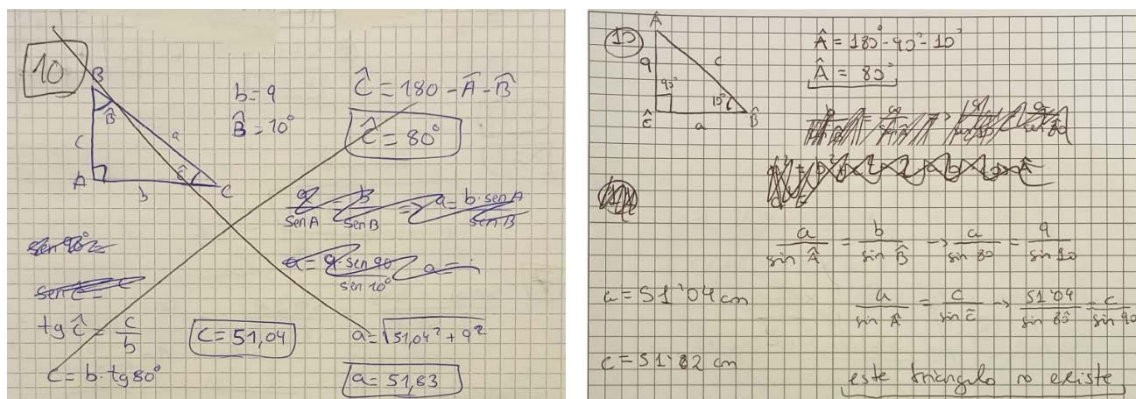 10
B
B̂
c
a
A
b
Ĉ
C
b = 9
B̂ = 10°
Ĉ = 180 - Â - B̂
Ĉ = 80°
a/sen A = b/sen B ⇒ a = b·sen A/sen B
a = 9·sen 90/sen 10° a =
sen 90° =
sen Ĉ =
tg Ĉ = c/b
c = 51,04
a = √51,04² + 9²
c = b·tg 80°
a = 51,83
10
Â
9
c
90°
10°
Ĉ
a
B̂
Â = 180° - 90° - 10°
Â = 80°
a/sin Â = b/sin B̂ → a/sin 80 = 9/sin 10
a = 51'04 cm
a/sin Â = c/sin Ĉ → 51'04/sin 80 = c/sin 90
c = 51'82 cm
este triangulo no existe